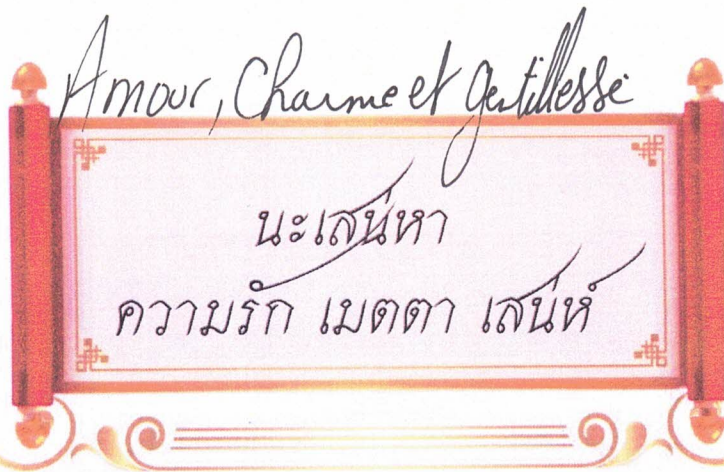 Amour, Charme et gentillesse
นะเสน่หา
ความรัก เมตตา เสน่ห์